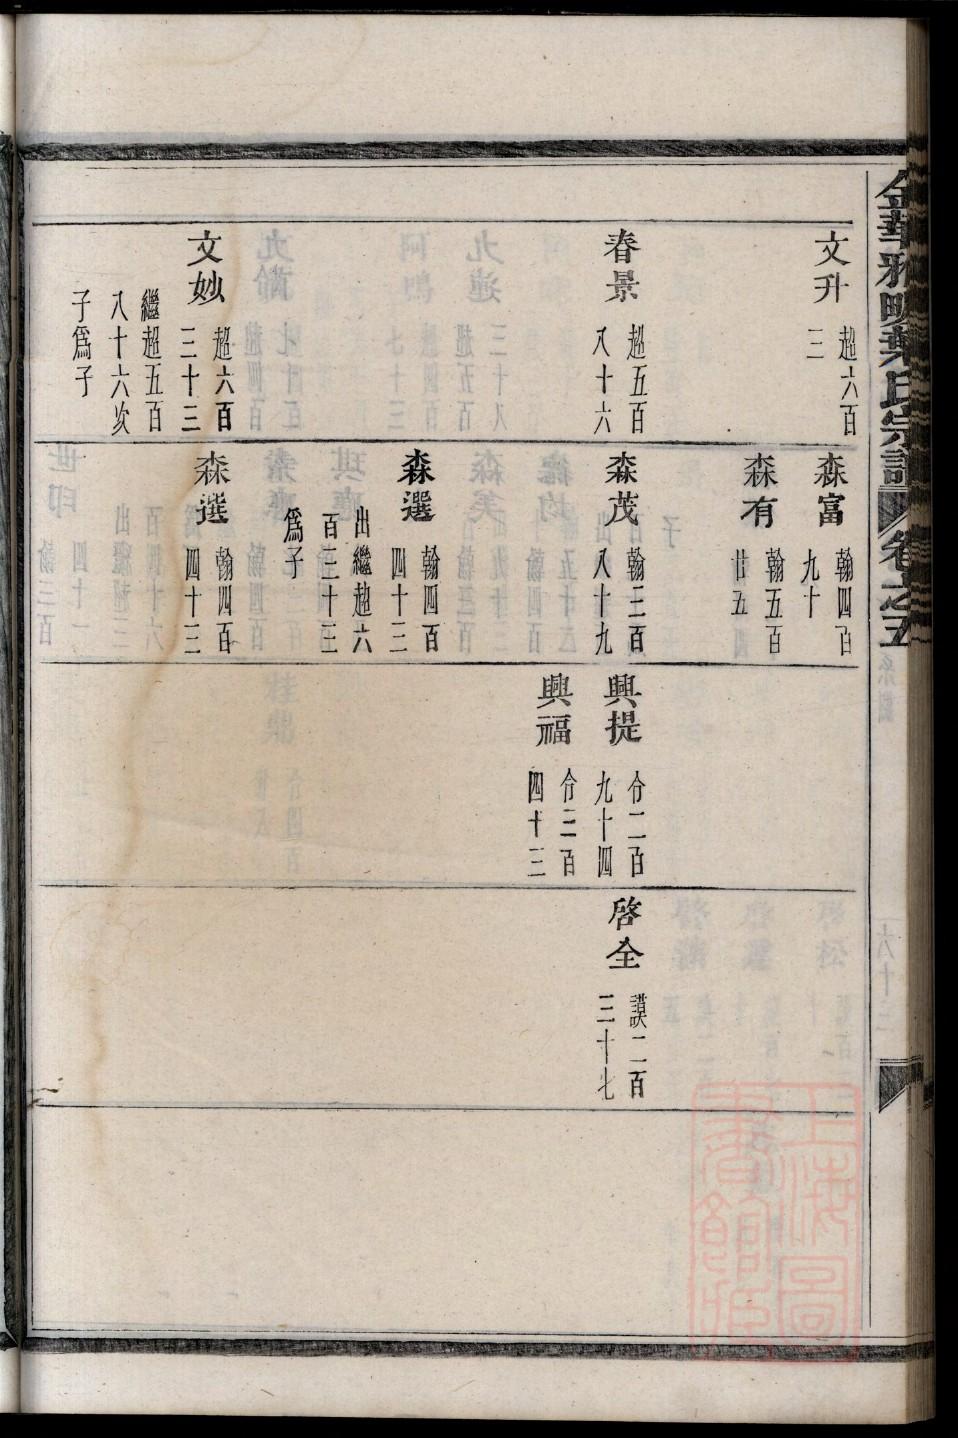 金華雅畈葉氏宗譜 卷之五
文升 超六百三
春景 超五百八十六
文妙 超六百三十三
繼超五百八十六次子為子
森富 翰四百九十
森有 翰五百廿五
森茂 翰三百八十九
森選 翰四百四十三
出繼超六百三十三為子
森選 翰四百四十三
興提 今二百九十四
興福 今三百四十三
啓全 謨二百三十七
上海圖書館藏